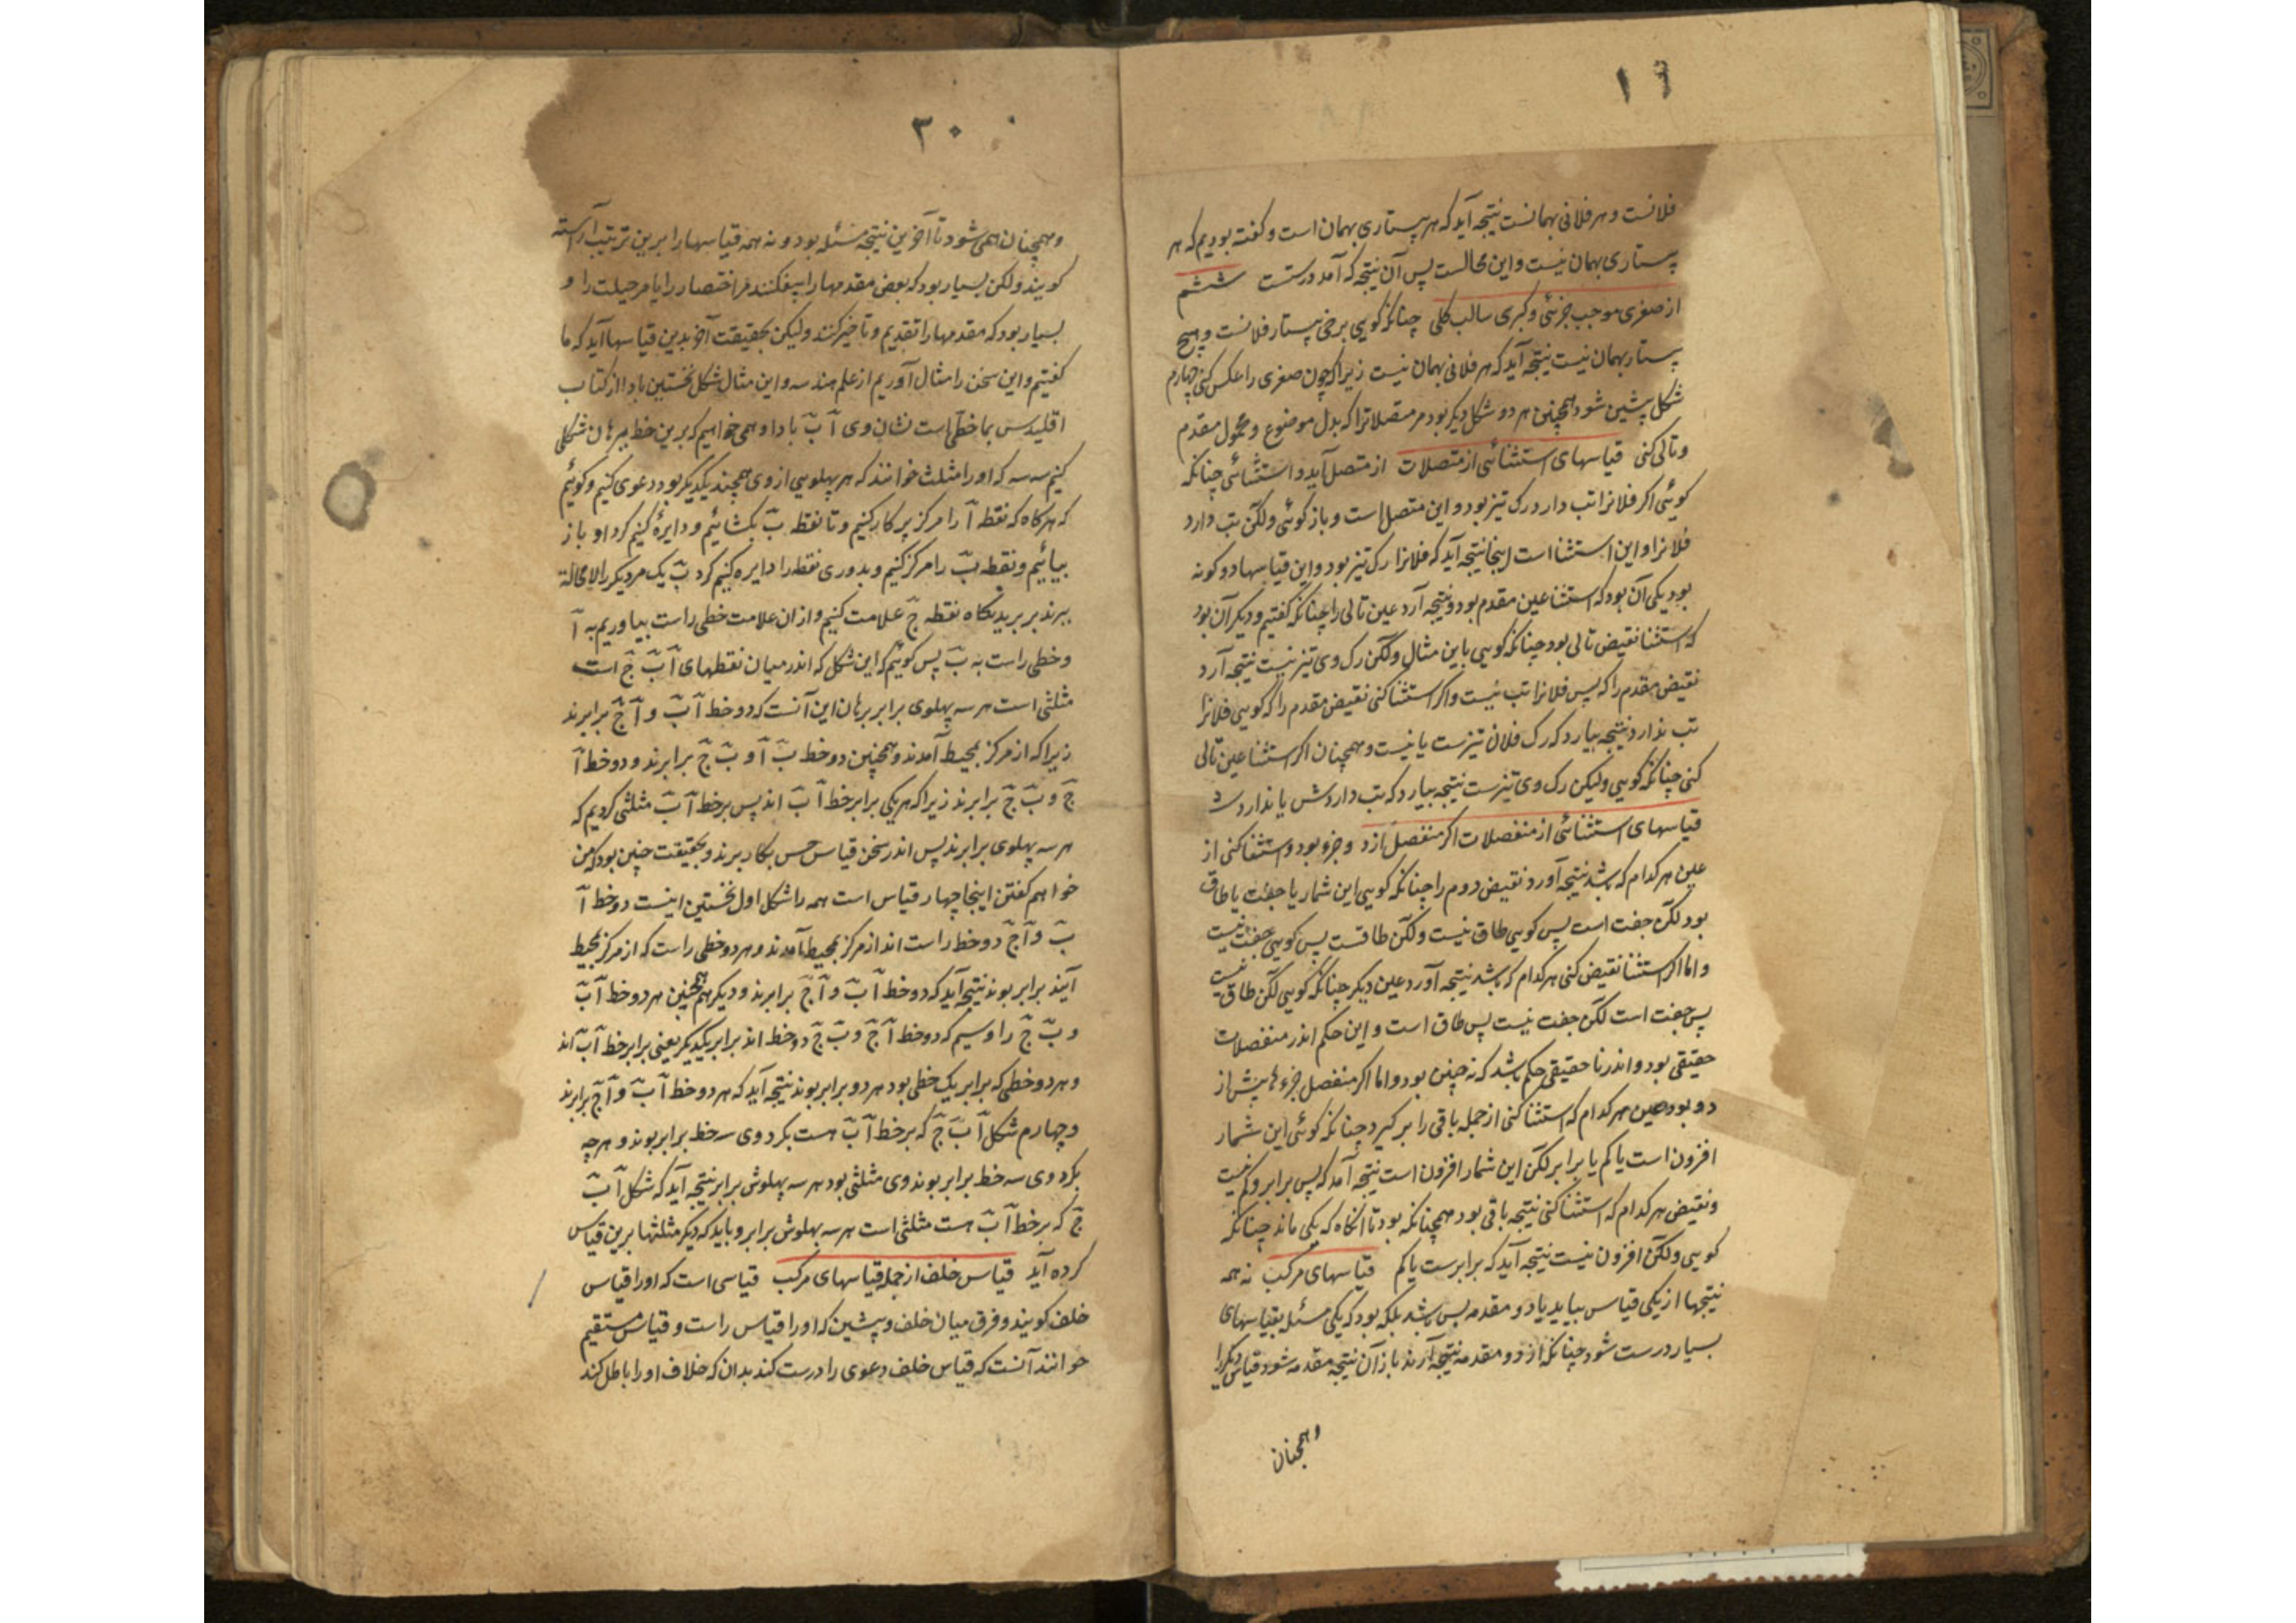 فلانست و هر فلانی بهمانست نتیجه آید که هر پیستاری بهمان است و کفته بودیم که هر
پیستاری بهمان نیست و این محالست پس آن نتیجه که آمد درستست ششم
از صغری موجب جزئی و کبری سالب کلی چنانکه کویی برخی پیستار فلانست و هیچ
پستار بهمان نیست نتیجه آید که هر فلانی بهمان نیست زیرا که چون صغری را عکس کنی چهارم
شکل پیشین شود همچنین هر دو شکل دیکر بود مر متصلاترا که بدل موضوع و محمول مقدم
و تالی کنی قیاسهای استثنائی از متصلات از متصل آید و استثنائی چنانکه
کوئی اکر فلانرا تب دارد رک تیز بود و این متصل است و باز کوئی ولکن تب دارد
فلانرا و این استثنا است اینجا نتیجه آید که فلانرا رک تیز بود و این قیاسها دو کونه
بود یکی آن بود که استثنا عین مقدم بود و نتیجه آرد عین تالی را چنانکه کفتیم و دیکر آن بود
که استثنا نقیض تالی بود چنانکه کویی باین مثال ولکن رک وی تیز نیست نتیجه آرد
نقیض مقدم را که پس فلانرا تب نیست و اکر استثنا کنی نقیض مقدم را که کویی فلانرا
تب ندارد نتیجه نیارد که رک فلان تیزست یا نیست و همچنان اکر استثنا عین تالی
کنی چنانکه کویی ولیکن رک وی تیزست نتیجه نیارد که تب داردش یا نداردش
قیاسهای استثنائی از منفصلات اکر منفصل از دو جزو بود و استثنا کنی از
عین هر کدام که باشد نتیجه آورد نقیض دوم را چنانکه کویی این شمار یا جفت یا طاق
بود لکن جفت است پس کویی طاق نیست ولکن طاقست پس کویی جفت نیست
و اما اکر استثنا نقیض کنی هر کدام که باشد نتیجه آورد عین دیکر چنانکه کویی لکن طاق نیست
پس جفت است لکن جفت نیست پس طاق است و این حکم اندر منفصلات
حقیقی بود و اندر نا حقیقی حکم باشد که نه چنین بود و اما اکر منفصل جزءها بیش از
دو بود عین هر کدام که استثنا کنی از جمله باقی را بر کیرد چنانکه کوئی این شمار
افزون است یا کم یا برابر لکن این شمار افزون است نتیجه آمد که پس برابر و کم نیست
و نقیض هر کدام که استثنا کنی نتیجه باقی بود همچنانکه بود تا آنکاه که یکی ماند چنانکه
کویی ولکن افزون نیست نتیجه آید که برابرست یا کم قیاسهای مرکب نه همه
نتیجها از یکی قیاس بیاید یا دو مقدمه بس باشد بلکه بود که یکی مسئله بقیاسهای
بسیار درست شود چنانکه از دو مقدمه نتیجه آرند باز آن نتیجه مقدمه شود قیاس دیکر را
و همچنان
۳۰
و همچنان همی شود تا آخرین نتیجه مسئله بود و نه همه قیاسها را برین ترتیب آراسته
کویند ولکن بسیار بود که بعض مقدمها را بیفکنند مر اختصار را یا مر حیلت را و
بسیار بود که مقدمها را تقدیم و تاخیر کنند ولیکن بحقیقت آخر بدین قیاسها آید که ما
کفتیم و این سخن را مثال آوریم از علم هندسه و این مثال شکل نخستین بادا از کتاب
اقلیدس بما خطی است نشان وی آ بَ بادا و همی خواهیم که برین خط ببرهان شکلی
کنیم سه سو که او را مثلث خوانند که هر پهلویی از وی همچند یکدیکر بود دعوی کنیم و کوئیم
که هرکاه که نقطه آ را مرکز پرکار کنیم و تا نقطه بَ بکشائیم و دایره کنیم کرد او باز
بیائیم و نقطه بَ را مرکز کنیم و بدوری نقطه را دایره کنیم کرد بَ یک مر دیکر را لا محاله
ببرند بر بریدنکاه نقطه جَ علامت کنیم و از ان علامت خطی راست بیاوریم به آ
و خطی راست به بَ پس کوئیم که این شکل که اندر میان نقطهای آ بَ جَ است
مثلثی است هر سه پهلوی برابر برهان این آنست که دو خط آ بَ و آ جَ برابرند
زیرا که از مرکز بمحیط آمدند و همچنین دو خط بَ آ و بَ جَ برابرند و دو خط آ
جَ و بَ جَ برابرند زیرا که هر یکی برابر خط آ بَ اند پس بر خط آ بَ مثلثی کردیم که
هر سه پهلوی برابرند پس اندر سخن قیاس چنین بکار برند و بحقیقت چنین بود که من
خواهم کفتن اینجا چهار قیاس است همه را شکل اول نخستین اینست دو خط آ
بَ و آ جَ دو خط راست اند از مرکز بمحیط آمدند و هر دو خطی راست که از مرکز بمحیط
آیند برابر بوند نتیجه آید که دو خط آ بَ و آ جَ برابرند و دیکر هم همچنین مر دو خط آ بَ
و بَ جَ را و سیم که دو خط آ جَ و بَ جَ دو خط اند برابر یکدیکر یعنی برابر خط آ بَ اند
و هر دو خطی که برابر یک خطی بود هر دو برابر بوند نتیجه آید که هر دو خط آ بَ و آ جَ برابرند
و چهارم شکل آ بَ جَ که بر خط آ بَ هست بکرد وی سه خط برابر بوند و هر چه
بکرد وی سه خط برابر بوند وی مثلثی بود هر سه پهلوش برابر نتیجه آید که شکل آ بَ
جَ که بر خط آ بَ هست مثلثی است هر سه پهلوش برابر و باید که دیکر مثلثها برین قیاس
کرده آید قیاس خلف از جمله قیاسهای مرکب قیاسی است که او را قیاس
خلف کویند و فرق میان خلف و پیشین که او را قیاس راست و قیاس مستقیم
خوانند آنست که قیاس خلف دعوی را درست کند بدان که خلاف او را باطل کند